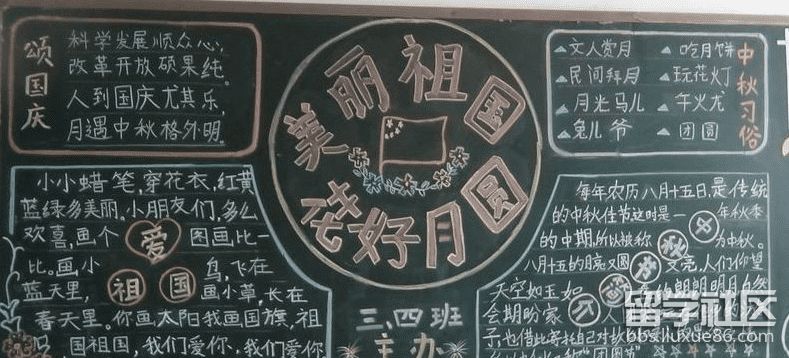 颂国庆
科学发展顺众心,
改革开放硕果纯。
人到国庆尤其乐,
月遇中秋格外明。
美丽祖国
花好月圆
中秋习俗
文人赏月 吃月饼
民间拜月 玩花灯
月光马儿 午火龙
兔儿爷 团圆
小小蜡笔,穿花衣,红黄
蓝绿多美丽。小朋友们,多么
欢喜,画个 爱 图画比一
比。画小 鸟,飞在
蓝天里, 祖国 画小草,长在
春天里。你画太阳我画国旗,祖
国祖国,我们爱你,我们爱你
三、四班
主办
每年农历八月十五日是传统
的中秋佳节.这时是一 年秋季
的中期,所以被称 中秋 为中秋。
八月十五的月亮又圆 又亮,人们仰望
天空如玉如 的朗朗明月
会期盼家
子,也借此寄托自己对故
留学社区
bbs.liuxue86.com